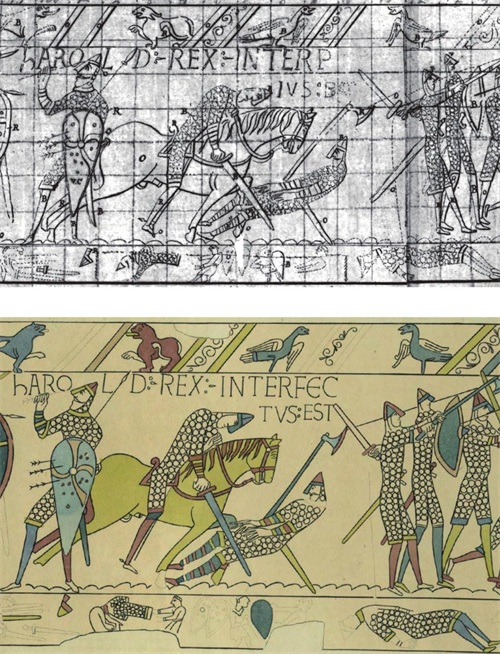 hAROL D:-REX:-INTERP
IVS:B
hAROL D:-REX:-INTERFEC
TVS:EST